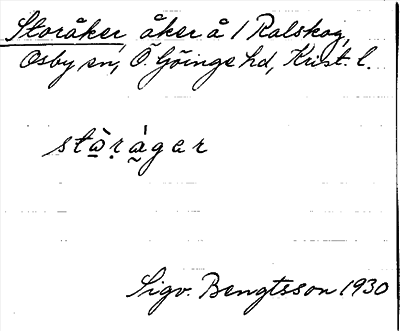 Storåker, åker å 1 Ralskog,
Osby sn, Ö. Göinge hd, Krist. l.
stò̱ṛá̰ger
Sigv. Bengtsson 1930